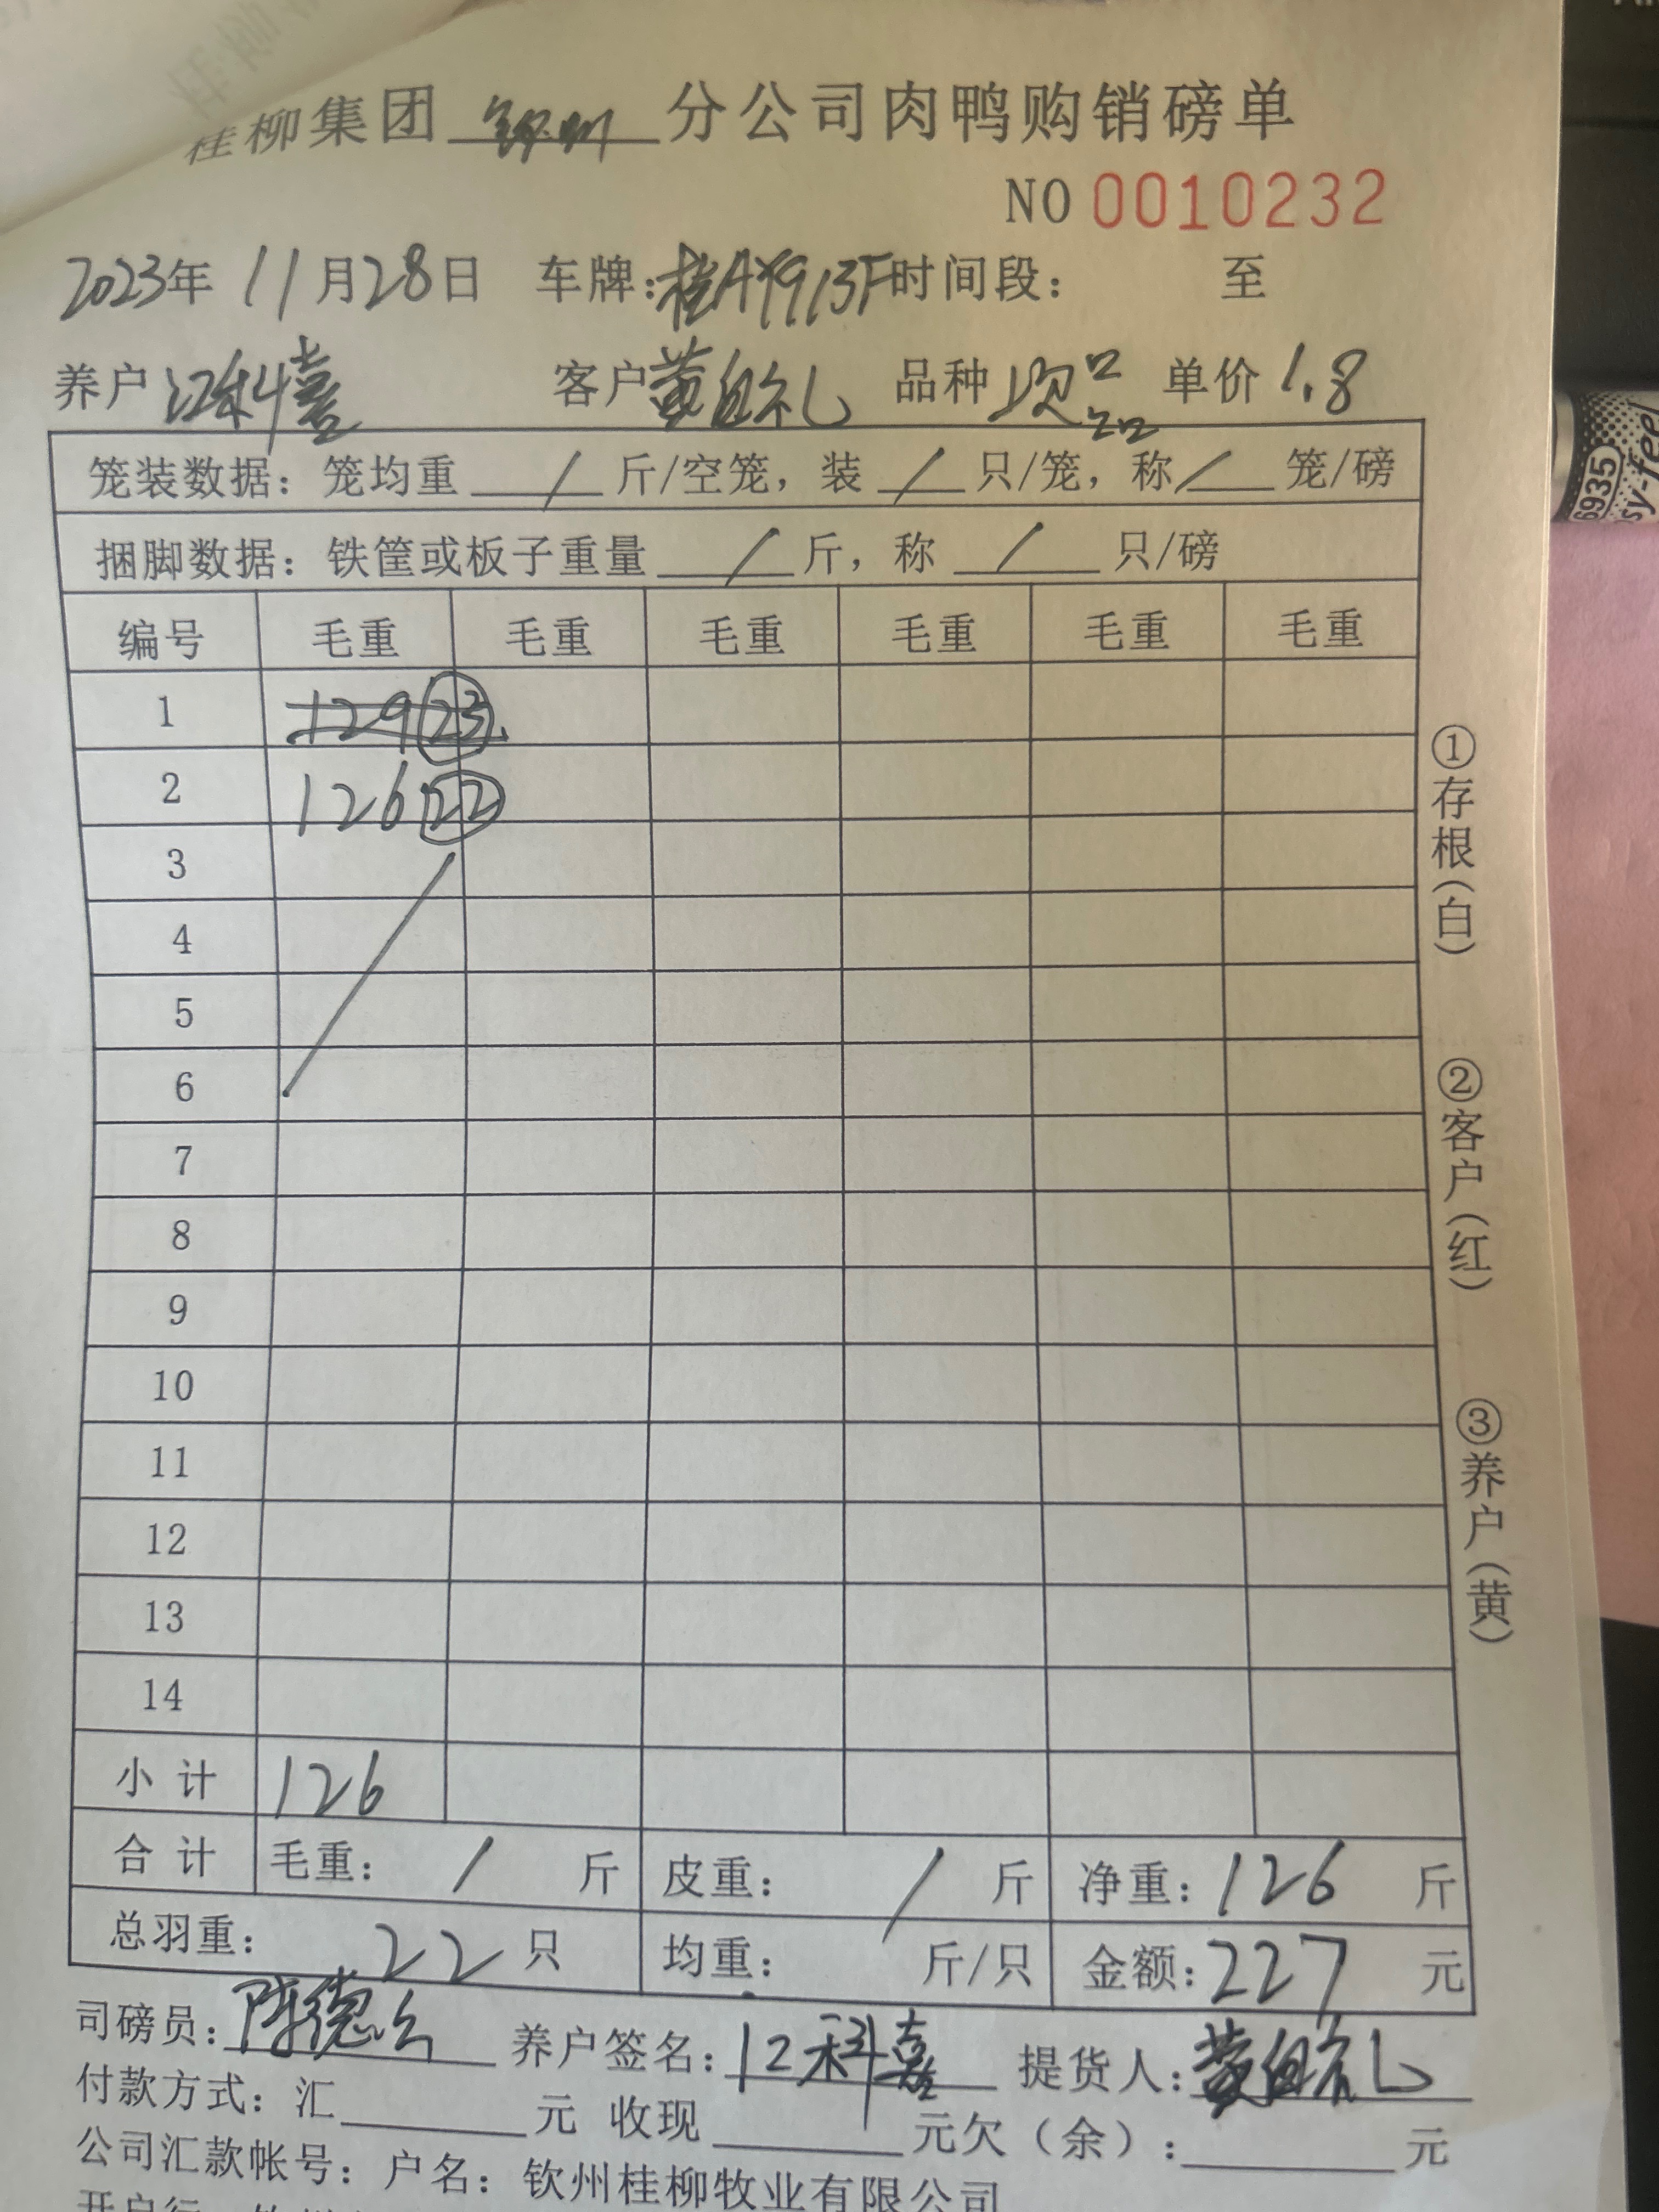 桂柳集团 钦州 分公司肉鸭购销磅单
NO 0010232
2023年 11月28日 车牌:桂AY913F时间段: 至
养户 江科喜 客户黄自礼 品种 次品 单价 1.8
笼装数据: 笼均重 / 斤/空笼, 装 / 只/笼, 称 / 笼/磅
捆脚数据: 铁筐或板子重量 / 斤, 称 / 只/磅
编号 毛重 毛重 毛重 毛重 毛重 毛重
1 129 23
2 126 22
3
4
5
6
7
8
9
10
11
12
13
14
小计 126
合计 毛重: / 斤 皮重: / 斤 净重: 126 斤
总羽重: 22 只 均重: 斤/只 金额: 227 元
司磅员: 陈德 养户签名: 江科喜 提货人: 黄自礼
付款方式: 汇 元 收现 元欠(余): 元
公司汇款帐号: 户名: 钦州桂柳牧业有限公司
开户行
①存根(白)
②客户(红)
③养户(黄)
6935
sy-feel